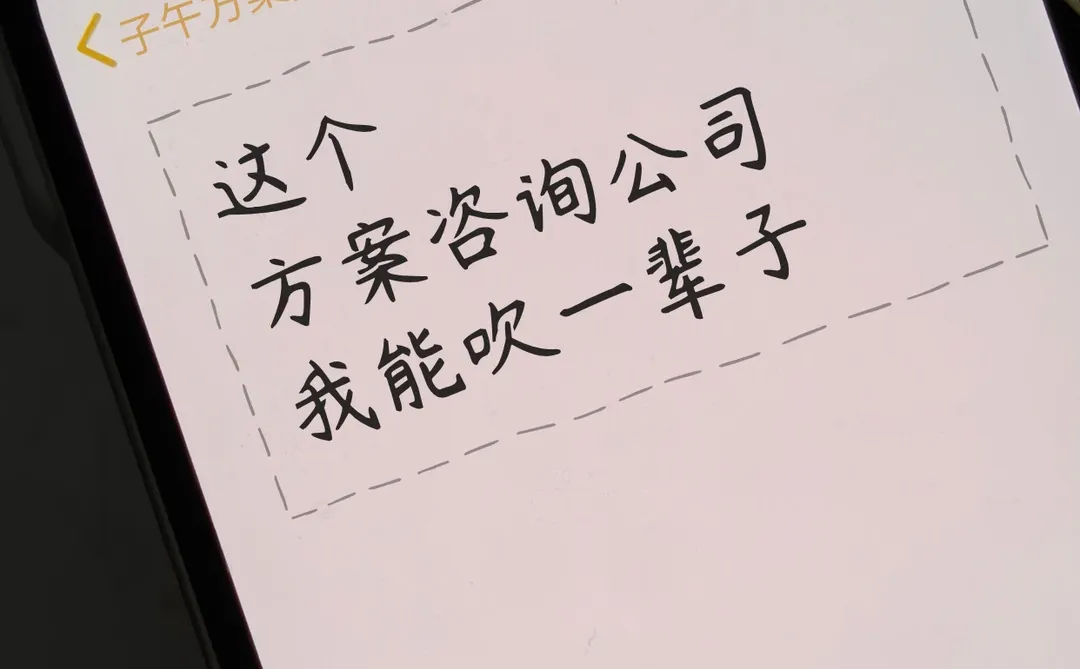 子午方案
这个
方案咨询公司
我能吹一辈子